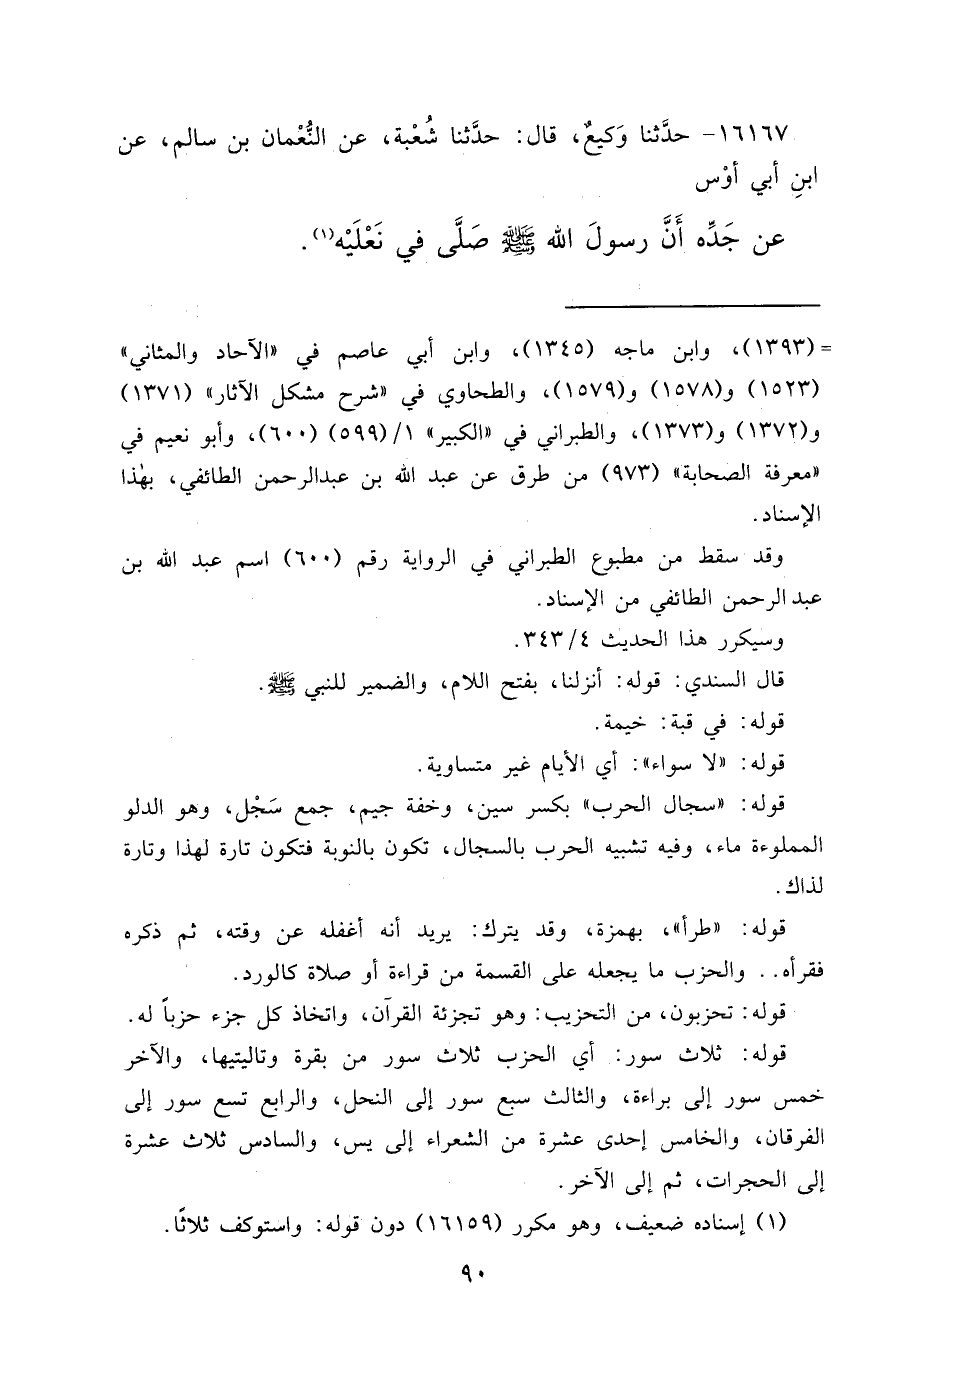 ١٦١٦٧- حدَّثنا وَكيعٌ، قال: حدَّثنا شُعْبة، عن النُّعْمان بن سالم، عن
ابنِ أبي أوْس
عن جَدِّه أَنَّ رسولَ الله ﷺ صَلَّى في نَعْلَيْه(١).
= (١٣٩٣)، وابن ماجه (١٣٤٥)، وابن أبي عاصم في «الآحاد والمثاني»
(١٥٢٣) و(١٥٧٨) و(١٥٧٩)، والطحاوي في «شرح مشكل الآثار» (١٣٧١)
و(١٣٧٢) و(١٣٧٣)، والطبراني في «الكبير» ١/(٥٩٩) (٦٠٠)، وأبو نعيم في
«معرفة الصحابة» (٩٧٣) من طرق عن عبد الله بن عبدالرحمن الطائفي، بهٰذا
الإسناد.
وقد سقط من مطبوع الطبراني في الرواية رقم (٦٠٠) اسم عبد الله بن
عبد الرحمن الطائفي من الإسناد.
وسيكرر هذا الحديث ٤/ ٣٤٣.
قال السندي: قوله: أنزلنا، بفتح اللام، والضمير للنبي ﷺ.
قوله: في قبة: خيمة.
قوله: «لا سواء»: أي الأيام غير متساوية.
قوله: «سجال الحرب» بكسر سين، وخفة جيم، جمع سَجْل، وهو الدلو
المملوءة ماء، وفيه تشبيه الحرب بالسجال، تكون بالنوبة فتكون تارة لهذا وتارة
لذاك.
قوله: «طرأ»، بهمزة، وقد يترك: يريد أنه أغفله عن وقته، ثم ذكره
فقرأه.. والحزب ما يجعله على القسمة من قراءة أو صلاة كالورد.
قوله: تحزبون، من التحزيب: وهو تجزئة القرآن، واتخاذ كل جزء حزباً له.
قوله: ثلاث سور: أي الحزب ثلاث سور من بقرة وتاليتيها، والآخر
خمس سور إلى براءة، والثالث سبع سور إلى النحل، والرابع تسع سور إلى
الفرقان، والخامس إحدى عشرة من الشعراء إلى يس، والسادس ثلاث عشرة
إلى الحجرات، ثم إلى الآخر.
(١) إسناده ضعيف، وهو مكرر (١٦١٥٩) دون قوله: واستوكف ثلاثًا.
٩٠